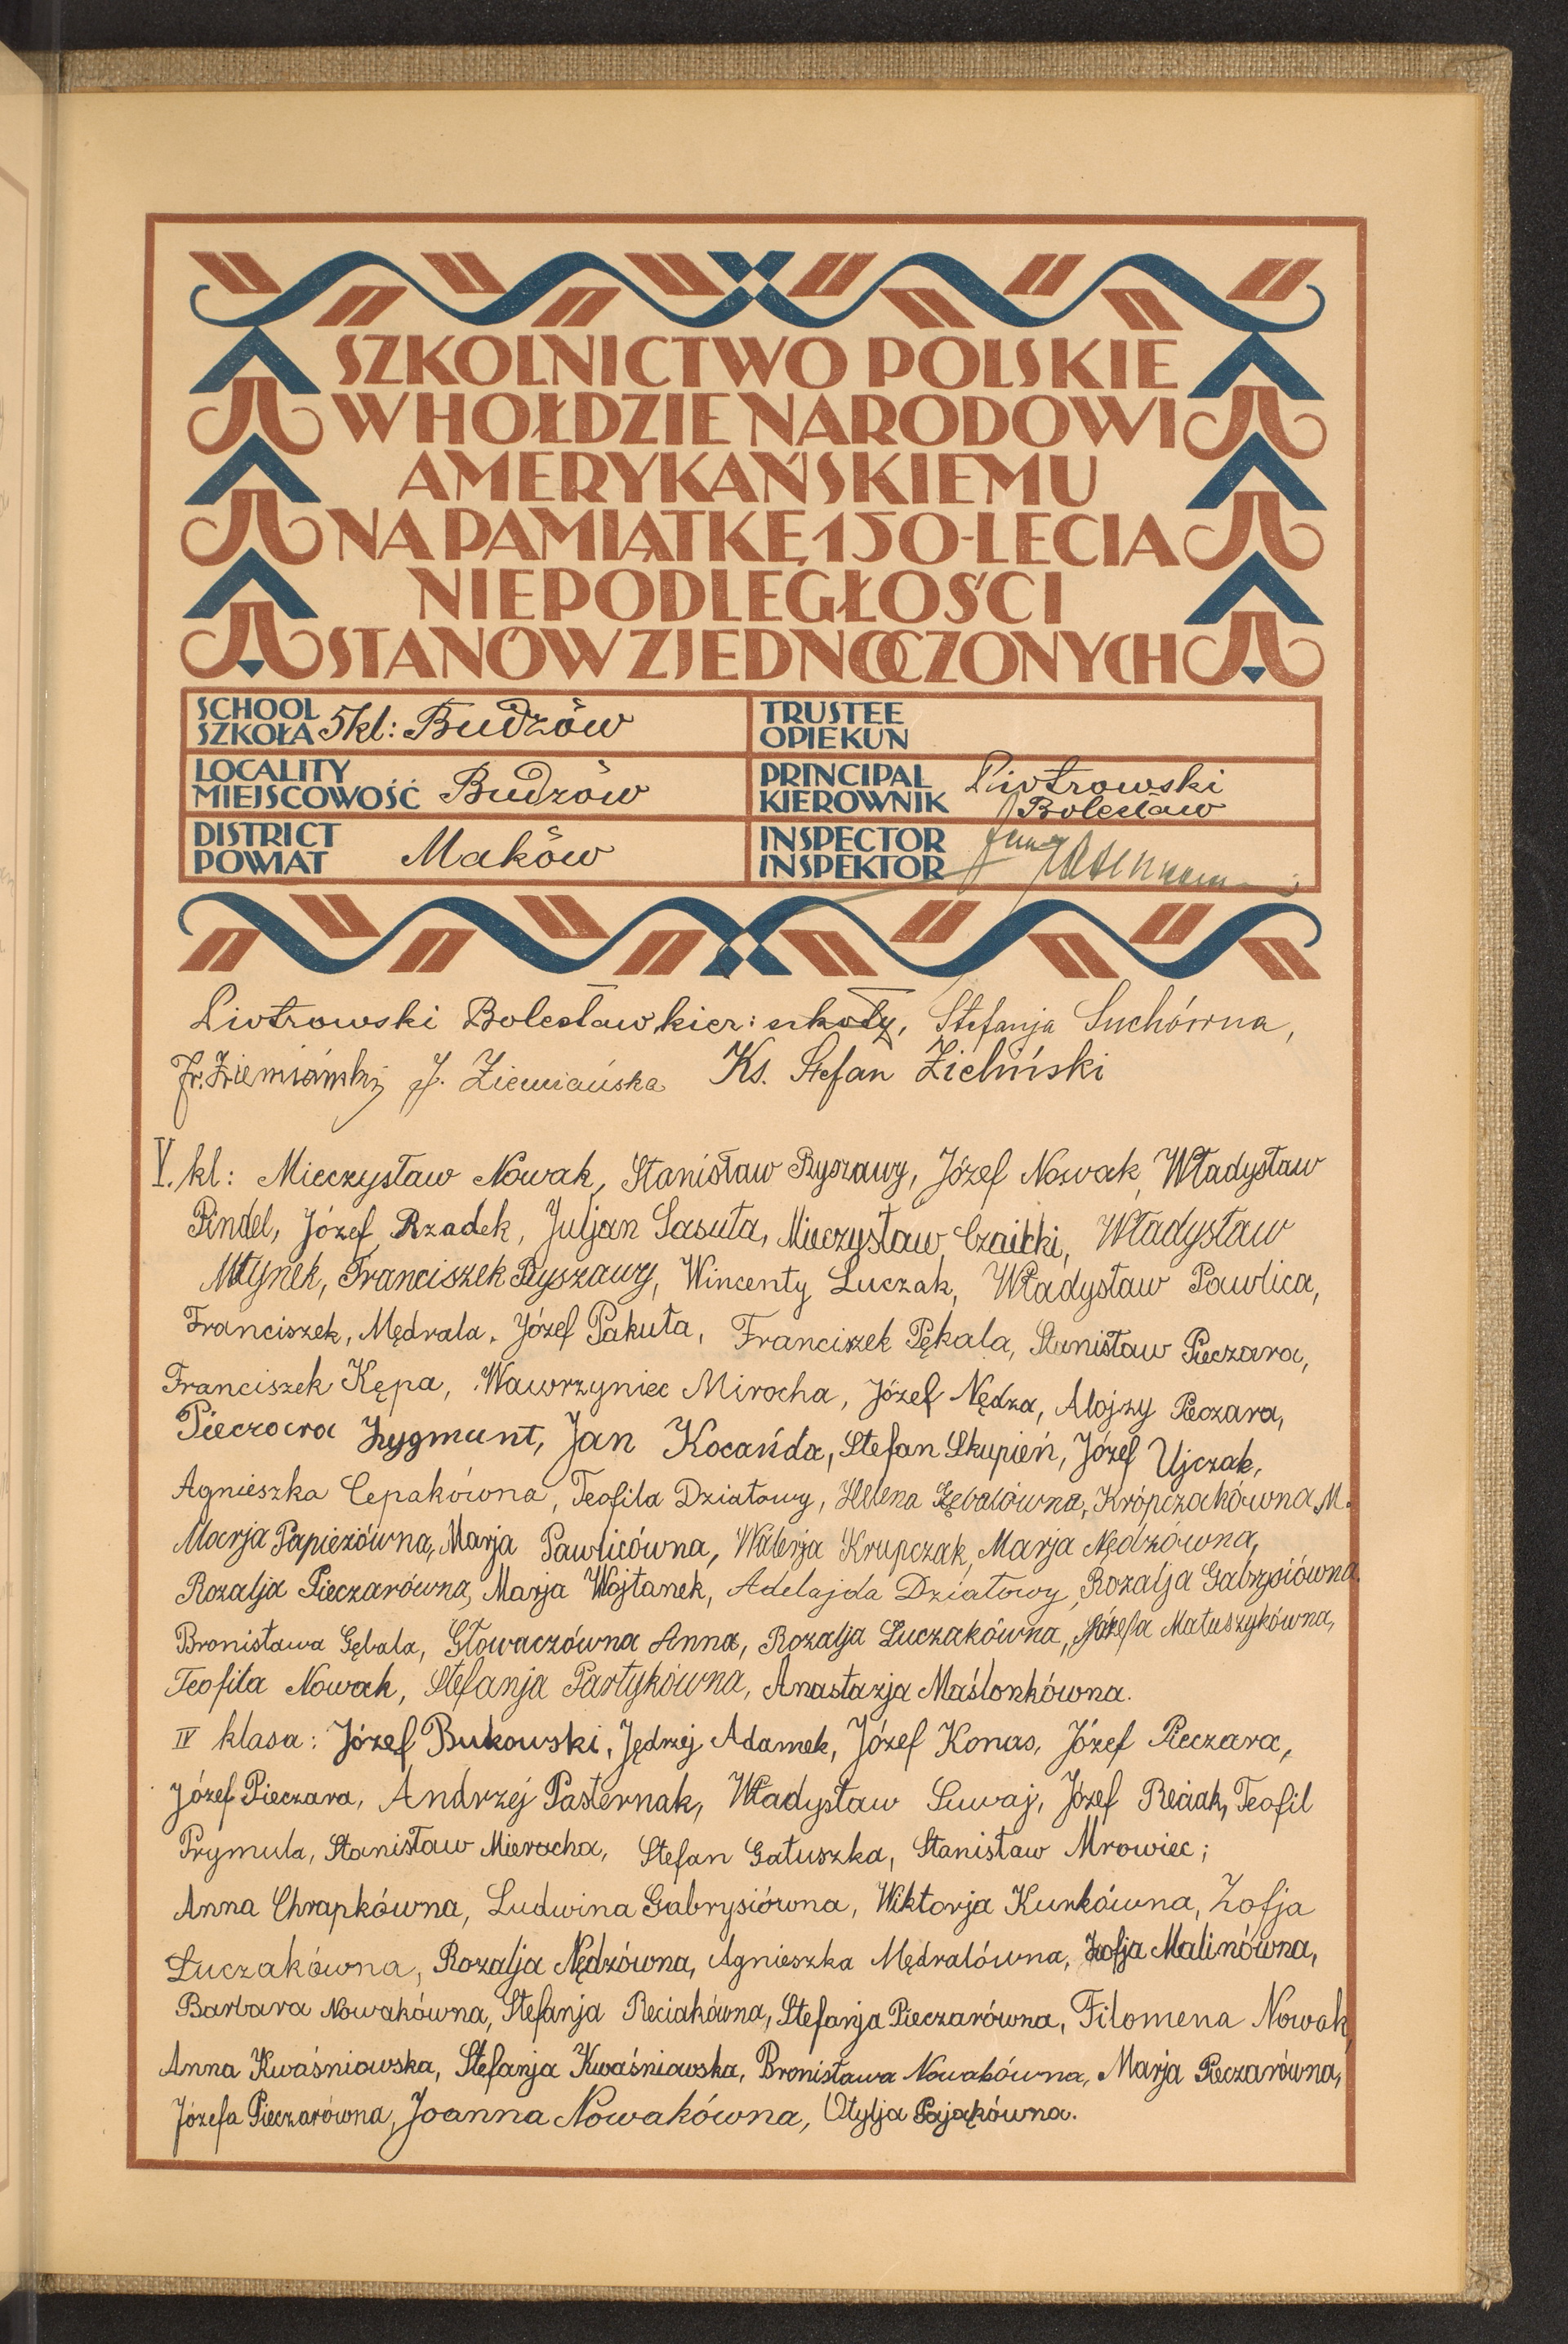 SZKOLNICTWO POLSKIE
W HOŁDZIE NARODOWI
AMERYKAŃSKIEMU
NA PAMIĄTKĘ 150-LECIA
NIEPODLEGŁOŚCI
STANÓW ZJEDNOCZONYCH
SCHOOL
SZKOŁA 5kl: Budzów
TRUSTEE
OPIEKUN
LOCALITY
MIEJSCOWOŚĆ Budzów
PRINCIPAL
KIEROWNIK Piotrowski
Bolesław
DISTRICT
POWIAT Maków
INSPECTOR
INSPEKTOR
Piotrowski Bolesław kier: szkoły, Stefanja Suchówna,
Fr. Ziemiański J. Ziemiańska Ks. Stefan Zieliński
V. kl: Mieczysław Nowak, Stanisław Ryszawy, Józef Nowak, Władysław
Pindel, Józef Rzadek, Juljan Sasuła, Mieczysław Czaicki, Władysław
Młynek, Franciszek Ryszawy, Wincenty Luczak, Władysław Pawlica,
Franciszek, Mędrala, Józef Pakuła, Franciszek Pękala, Stanisław Pieczara,
Franciszek Kępa, Wawrzyniec Mirocha, Józef Nędza, Alojzy Pieczara,
Pieczara Zygmunt, Jan Kocańda, Stefan Skupień, Józef Ujczak,
Agnieszka Cepakówna, Teofila Działowy, Helena Gębalówna, Krópczakówna M.
Marja Papieżówna, Marja Pawlicówna, Walerja Krupczak, Marja Nędzówna,
Rozalja Pieczarówna, Marja Wojtanek, Adelajda Działowy, Rozalja Gabrysiówna.
Bronisława Gębala, Głowaczówna Anna, Rozalja Luczakówna, Józefa Matuszykówna,
Teofila Nowak, Stefanja Partykówna, Anastazja Maślonkówna.
IV klasa: Józef Bukowski, Jędrzej Adamek, Józef Konas, Józef Pieczara,
Józef Pieczara, Andrzej Pasternak, Władysław Suwaj, Józef Reciak, Teofil
Prymula, Stanisław Mierocha, Stefan Gałuszka, Stanisław Mrowiec;
Anna Chrapkówna, Ludwina Gabrysiówna, Wiktorja Kurkówna, Zofja
Luczakówna, Rozalja Nędzówna, Agnieszka Mędralówna, Zofja Malinówna,
Barbara Nowakówna, Stefanja Reciakówna, Stefanja Pieczarówna, Filomena Nowak,
Anna Kwaśniowska, Stefanja Kwaśniowska, Bronisława Nowakówna, Marja Pieczarówna,
Józefa Pieczarówna, Joanna Nowakówna, Otylja Pająkówna.